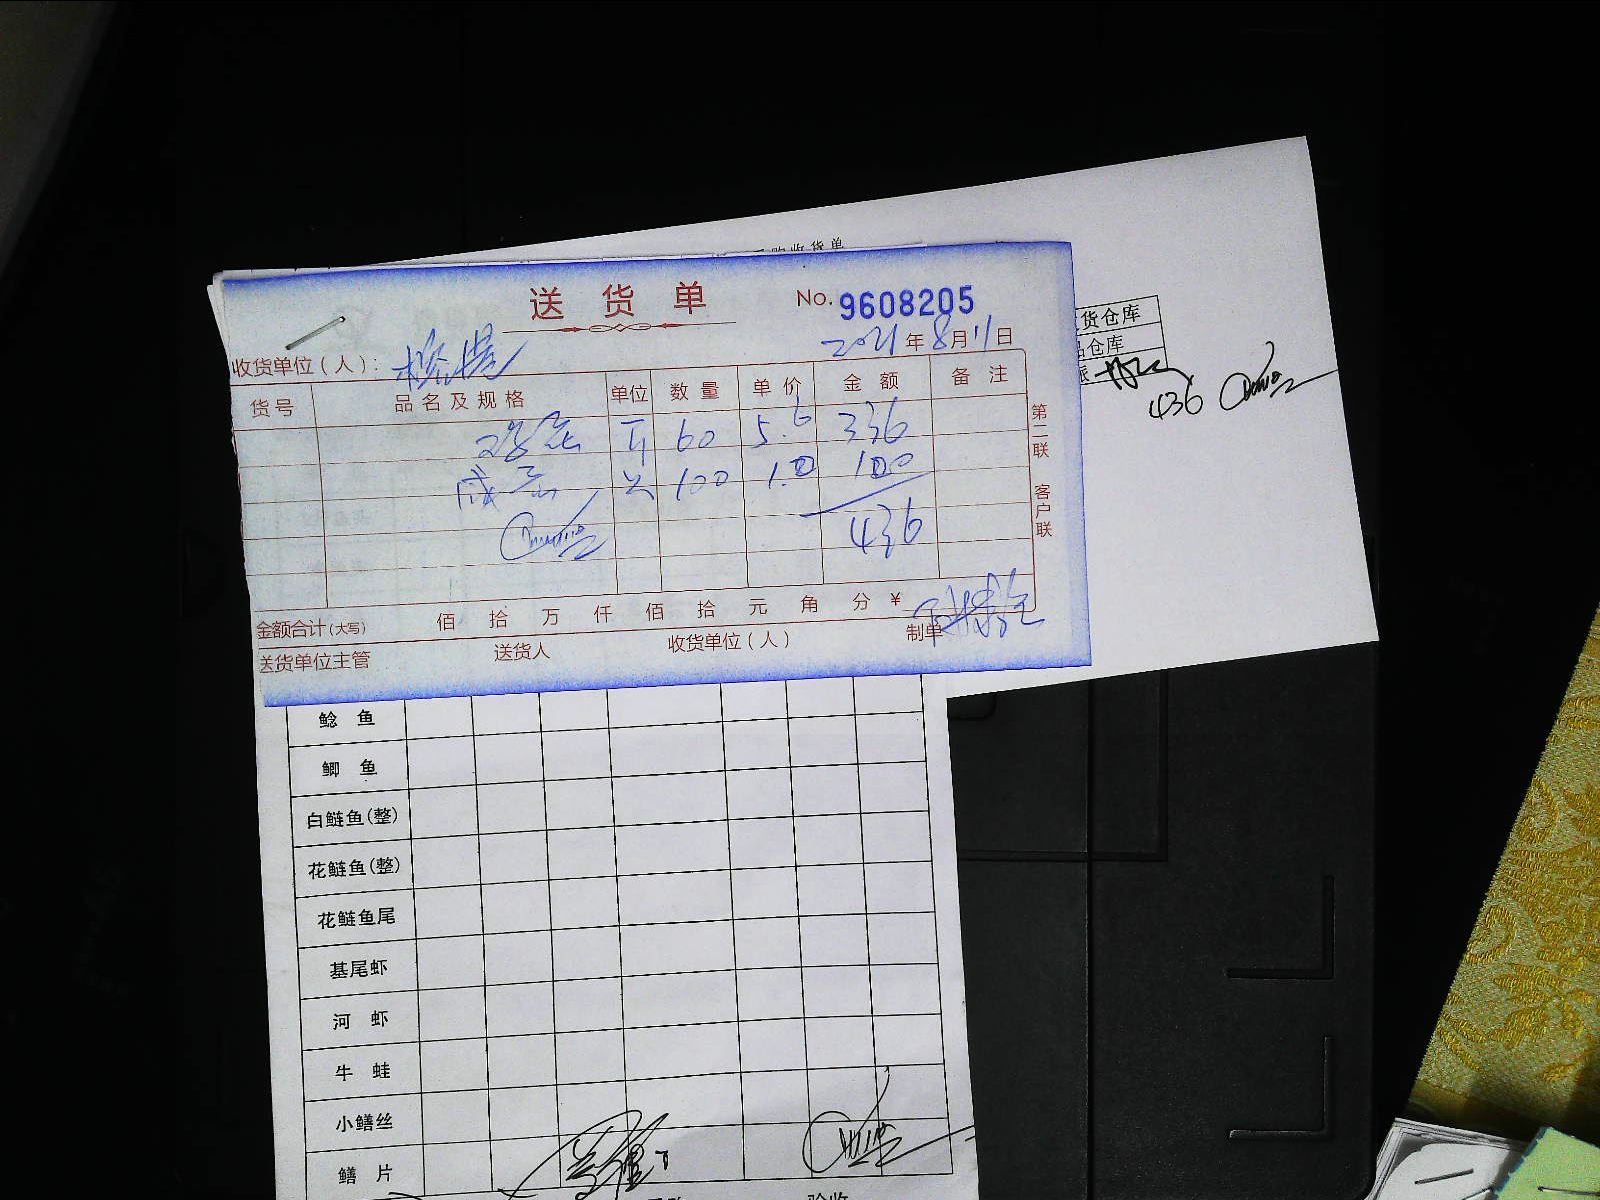 购收货单
送货单 No. 9608205
收货单位(人):
2021年8月11日
货号 品名及规格 单位 数量 单价 金额 备注
鸡蛋 斤 60 5.6 336
咸蛋 只 100 1.00 100
436
金额合计(大写) 佰 拾 万 仟 佰 拾 元 角 分 ¥
送货单位主管 送货人 收货单位(人) 制单
第二联 客户联
货仓库
品仓库
436
鲶鱼
鲫鱼
白鲢鱼(整)
花鲢鱼(整)
花鲢鱼尾
基尾虾
河虾
牛蛙
小鳝丝
鳝片
验收